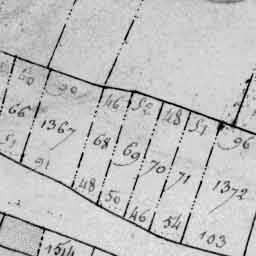 60 90 46 52 48 51 96
66 1367 68 69 70 71 1372
91 48 50 46 54 103
1514